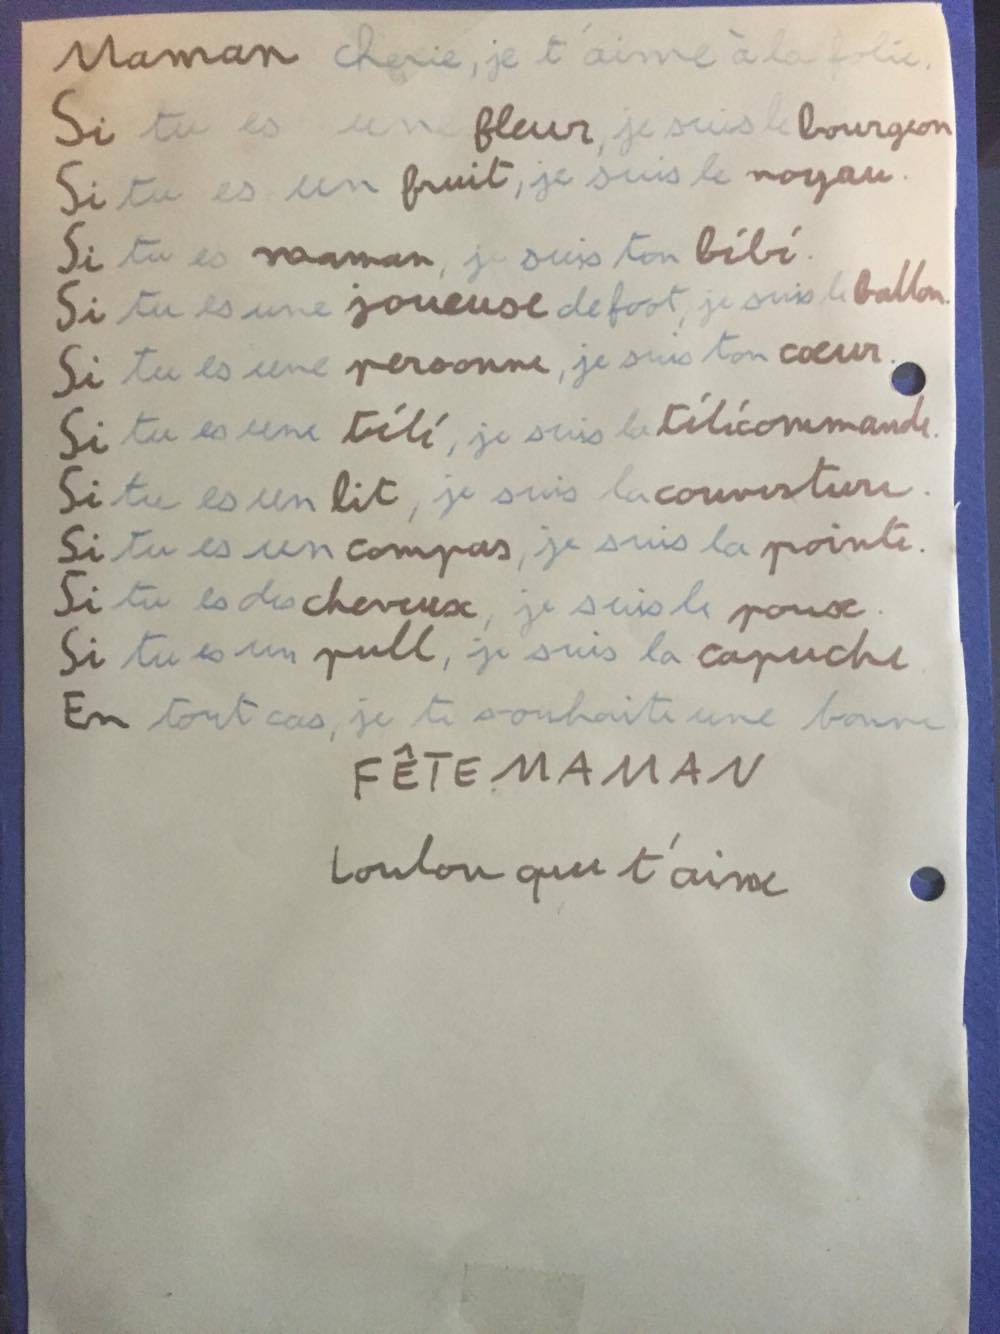 Maman cherie, je t'aime à la folie.
Si tu es une fleur, je suis le bourgeon
Si tu es un fruit, je suis le noyau.
Si tu es maman, je suis ton bébé.
Si tu es une joueuse de foot, je suis le ballon.
Si tu es une personne, je suis ton cœur.
Si tu es une télé, je suis la télécommande.
Si tu es un lit, je suis la couverture.
Si tu es un compas, je suis la pointe.
Si tu es des cheveux, je suis le poux.
Si tu es un pull, je suis la capuche
En tout cas, je te souhaite une bonne
FÊTE MAMAN
Loulou qui t'aime